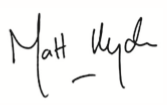 Matt Hyde